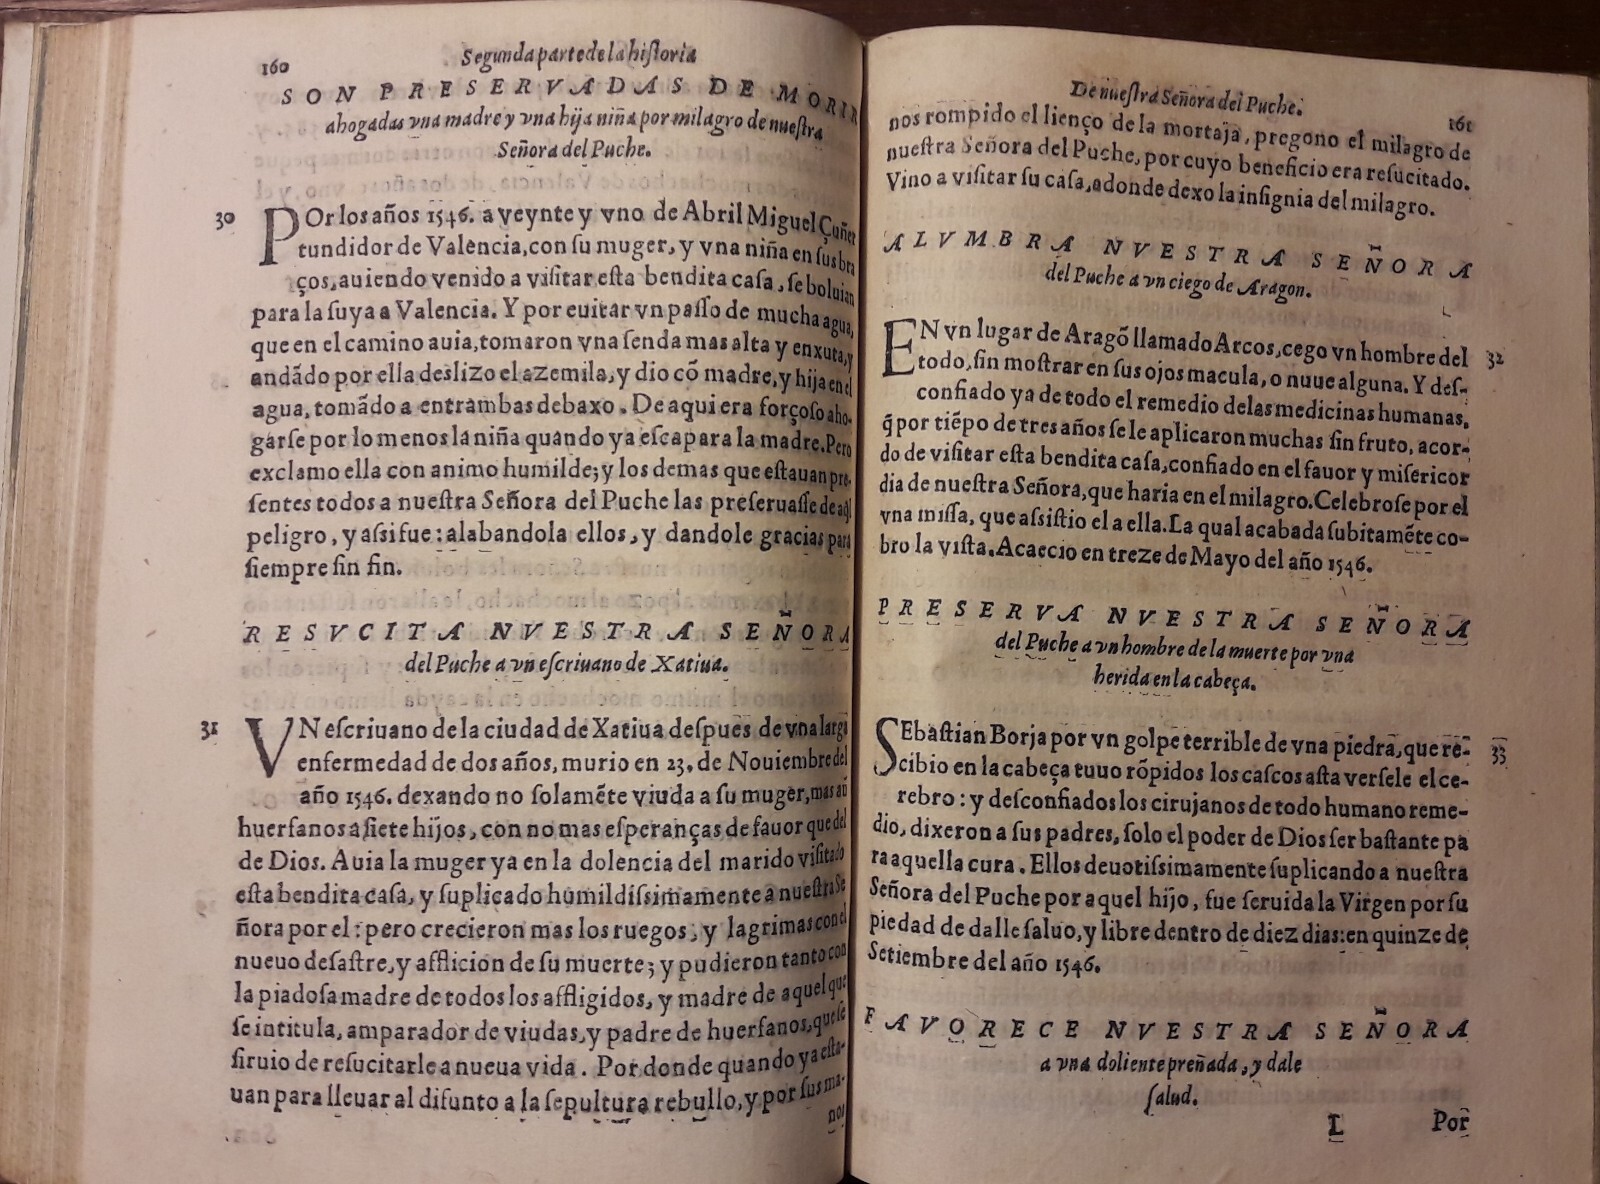 160
Segunda parte de la hiſtoria
SON PRESERVADAS DE MORIR
ahogadas vna madre y vna hija niña por milagro de nueſtra
Señora del Puche.
30
POr los años 1546. a veynte y vno de Abril Miguel Çuñer
tundidor de Valencia, con ſu muger, y vna niña en ſus bra
ços, auiendo venido a viſitar eſta bendita caſa, ſe boluian
para la ſuya a Valencia. Y por euitar vn paſſo de mucha agua,
que en el camino auia, tomaron vna ſenda mas alta y enxuta, y
andãdo por ella deslizo el azemila, y dio cõ madre, y hija en el
agua, tomãdo a entrambas debaxo. De aqui era forçoſo aho-
garſe por lo menos la niña quando ya eſcapara la madre. Pero
exclamo ella con animo humilde; y los demas que eſtauan pre-
ſentes todos a nueſtra Señora del Puche las preſeruaſſe de aq̃l
peligro, y aſsi fue: alabandola ellos, y dandole gracias para
ſiempre ſin fin.
RESVCITA NVESTRA SEÑORA
del Puche a vn eſcriuano de Xatiua.
31
VN eſcriuano de la ciudad de Xatiua deſpues de vna larga
enfermedad de dos años, murio en 23. de Nouiembre del
año 1546. dexando no ſolamẽte viuda a ſu muger, mas aũ
huerfanos a ſiete hijos, con no mas eſperanças de fauor que del
de Dios. Auia la muger ya en la dolencia del marido viſitado
eſta bendita caſa, y ſuplicado humildiſsimamente a nueſtra Se
ñora por el: pero crecieron mas los ruegos, y lagrimas con el
nueuo deſaſtre, y afflicion de ſu muerte; y pudieron tanto con
la piadoſa madre de todos los affligidos, y madre de aquel que
ſe intitula, amparador de viudas, y padre de huerfanos, que ſe
ſiruio de reſucitarle a nueua vida. Por donde quando ya eſta-
uan para lleuar al difunto a la ſepultura rebullo, y por ſus ma-
nos
De nueſtra Señora del Puche.
161
nos rompido el lienço de la mortaja, pregono el milagro de
nueſtra Señora del Puche, por cuyo beneficio era reſucitado.
Vino a viſitar ſu caſa, adonde dexo la inſignia del milagro.
ALVMBRA NVESTRA SEÑORA
del Puche a vn ciego de Aragon.
EN vn lugar de Aragõ llamado Arcos, cego vn hombre del
32
todo, ſin moſtrar en ſus ojos macula, o nuue alguna. Y deſ-
confiado ya de todo el remedio de las medicinas humanas,
q̃ por tiẽpo de tres años ſe le aplicaron muchas ſin fruto, acor-
do de viſitar eſta bendita caſa, confiado en el fauor y miſericor
dia de nueſtra Señora, que haria en el milagro. Celebroſe por el
vna miſſa, que aſsiſtio el a ella. La qual acabada ſubitamẽte co-
bro la viſta. Acaecio en treze de Mayo del año 1546.
PRESERVA NVESTRA SEÑORA
del Puche a vn hombre de la muerte por vna
herida en la cabeça.
SEbaſtian Borja por vn golpe terrible de vna piedra, que re-
33
cibio en la cabeça tuuo rõpidos los caſcos aſta verſele el ce-
rebro: y deſconfiados los cirujanos de todo humano reme-
dio, dixeron a ſus padres, ſolo el poder de Dios ſer baſtante pa
ra aquella cura. Ellos deuotiſsimamente ſuplicando a nueſtra
Señora del Puche por aquel hijo, fue ſeruida la Virgen por ſu
piedad de dalle ſaluo, y libre dentro de diez dias: en quinze de
Setiembre del año 1546.
FAVORECE NVESTRA SEÑORA
a vna doliente preñada, y dale
ſalud.
L
Por